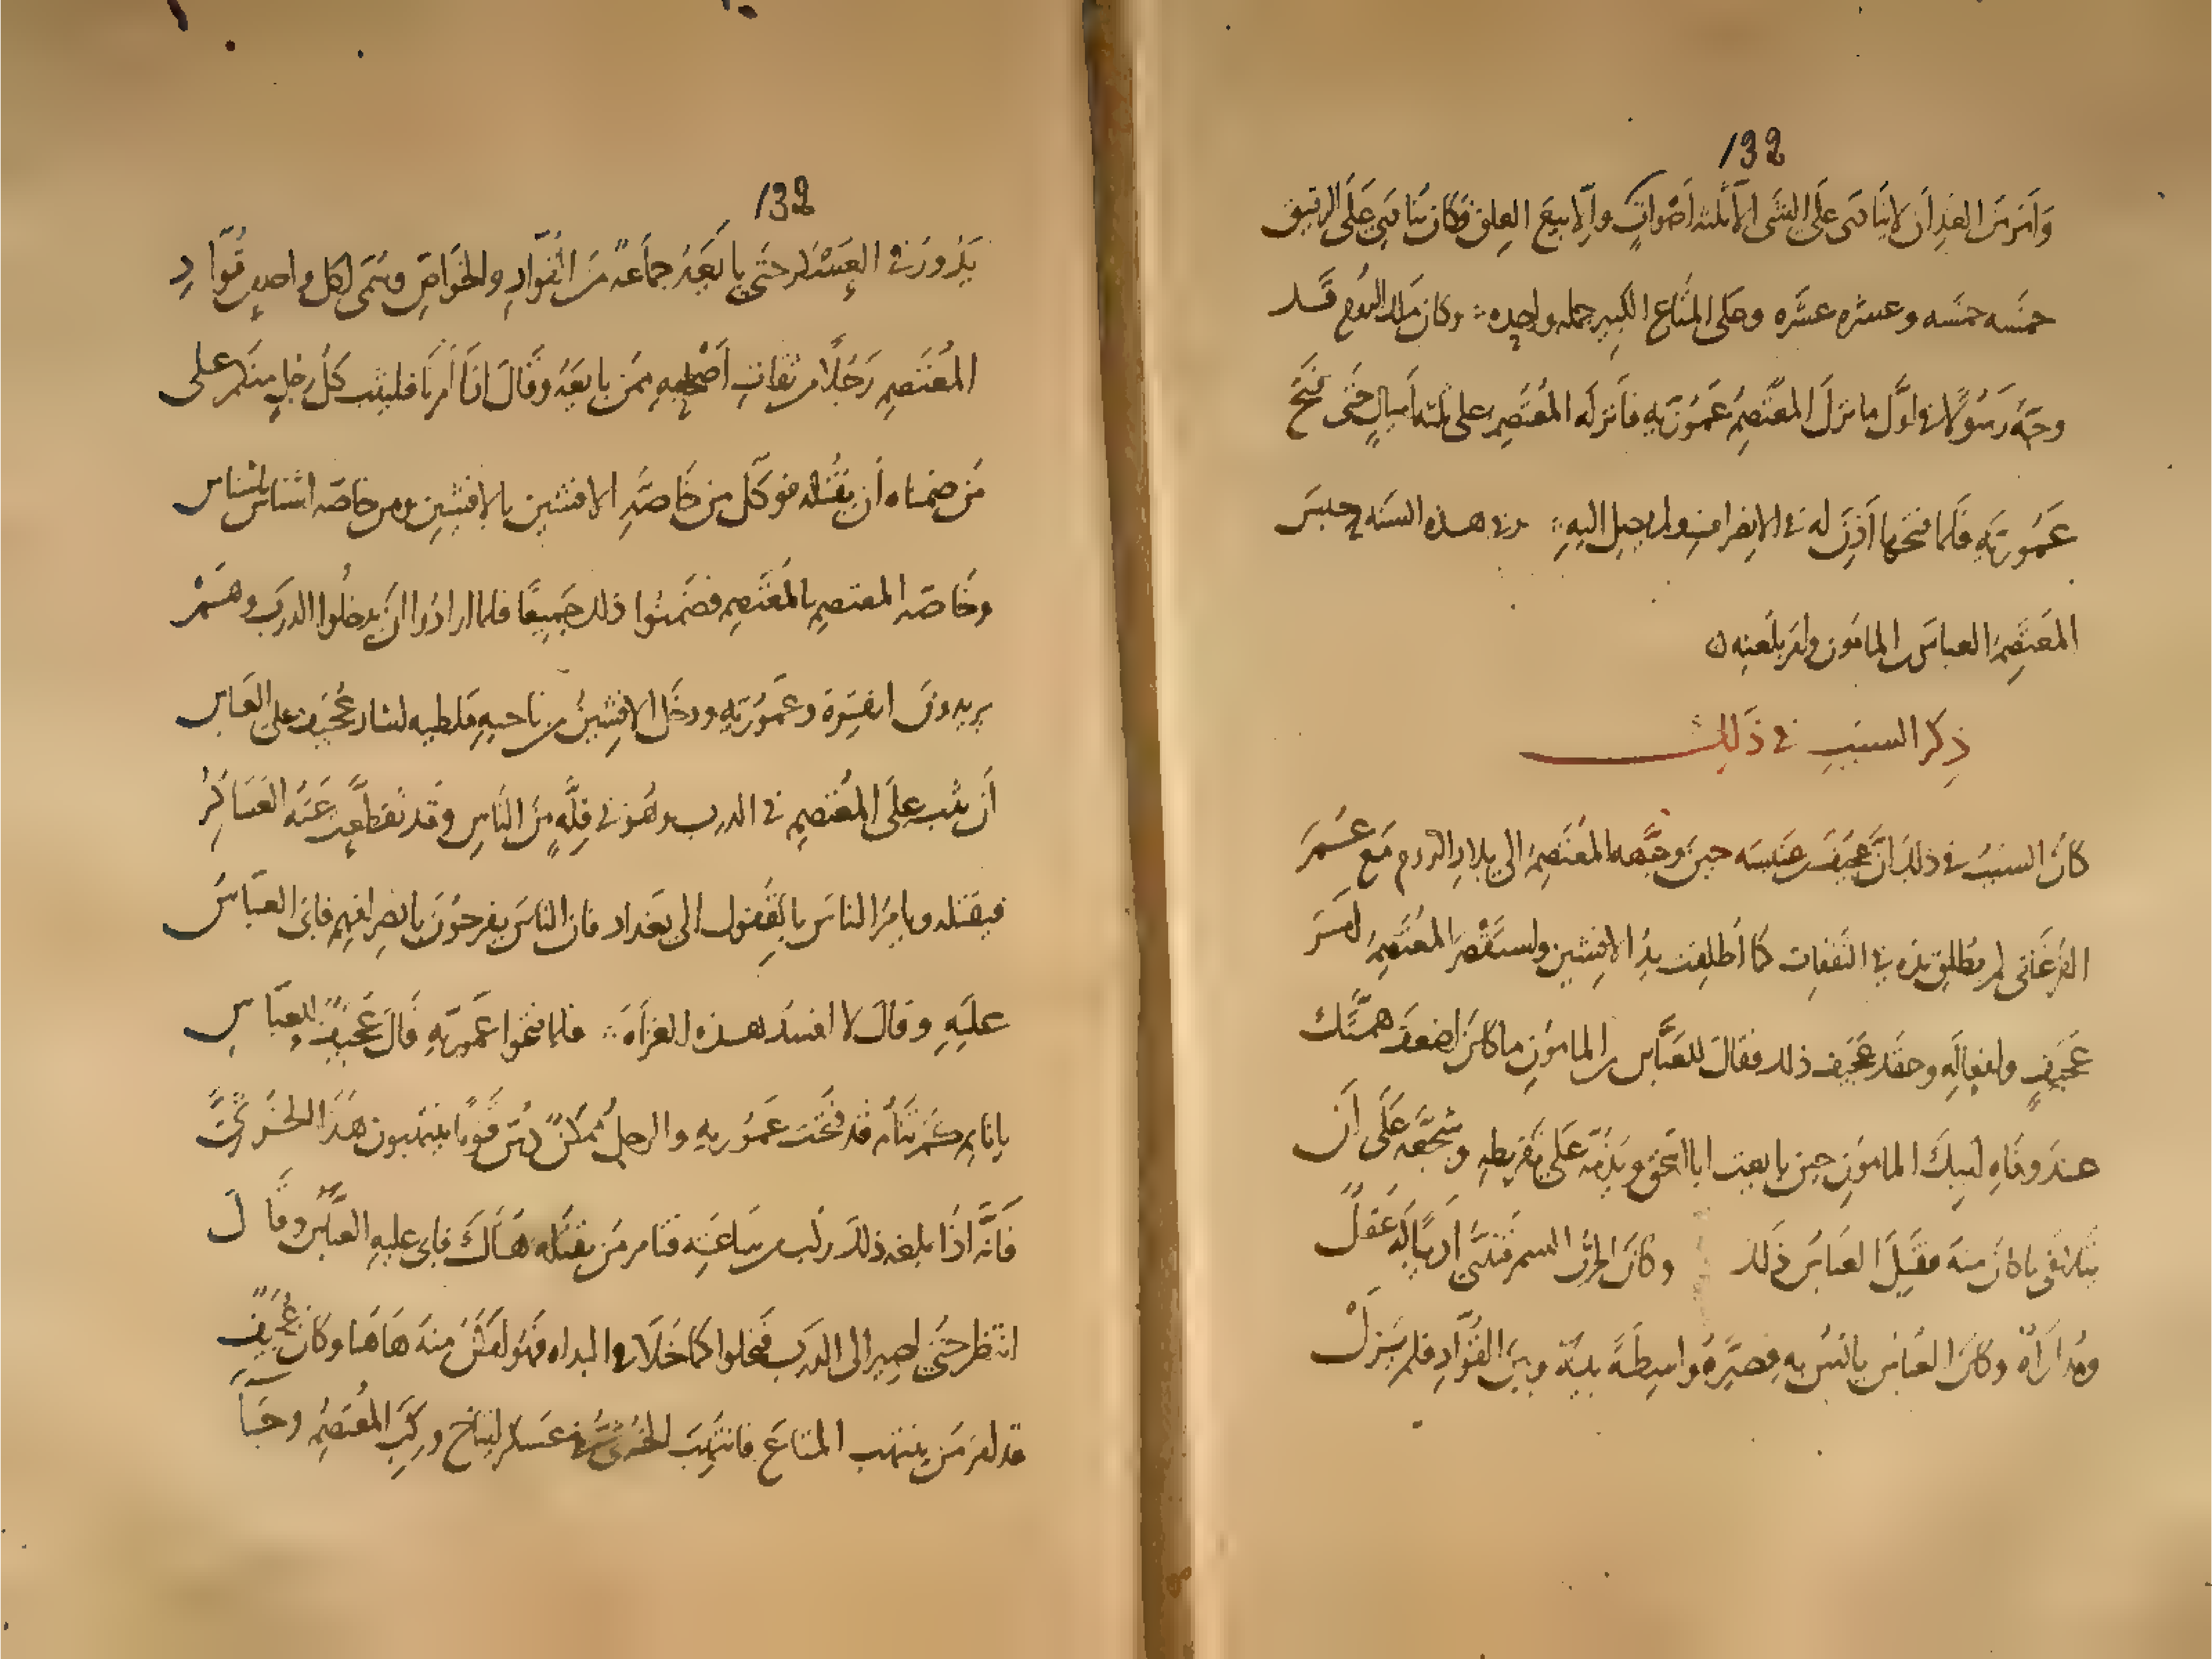 132
وَأَمَرَ مِنَ الغَدِ أن لا يُنَادَى عَلَى الشَّىِ الا ثَلثه أصْواتٍ وإلّا بِيعَ العِلق فكان يُنَادَى عَلَى الرقيق
خمسَه خمسَه وعشره عشره وعلى المتَاع الكبير جمله واحِده ∴ وكان ملك الروُم قَد
وجّهَ رَسُولًا في اوّل ما نزلَ المُعْتَصِمُ عَمُّورَيهِ فأنزله المُعْتَصِم على ثلثه أميالٍ حَتى فتحَ
عَمُّوريَهِ فلما فتحها أذِنَ له في الانِصرافِ ولم يجبل اليهِ ∴ وفي هذه السَنه حبسَ
المعتَصِمُ العباسَ بن المامون وأمر بلَعنه ٥
ذِكر السبَبِ في ذَلِكَ
كانَ السَببُ في ذلكَ انّ عُجَيفَ بن عنبسَه حينَ وجَّهه المعتَصِمُ الى بلادِ الروم مَع عُمَرَ
الفَرغَانى لم يُطلِق يَدَه في النَفَقات كما أُطلِقت يدُ الافشين واستَقْصَرَ المُعْتَصِمُ أمرَ
عُجَيفٍ وافعالَهِ وحقَدَ عُجَيف ذلك فقالَ للعَبَّاس بن المامونِ ما كانَ اضعفَ همتَك
عندَ وفاهِ ابيكَ المامونِ حِين بايعت ابا اسحق ويَذُمّه عَلَى تفريطِهِ وشجَّعَه عَلَى أن
يتلافَى ما كان منهَ فقَبِلَ العباسُ ذَلك وكانَ الحرَثُ السمرقَندىّ أديبًا لَه عَقلٌ
ومُدارَاهٌ وكانَ العَباسُ يانسُ بِه فصَيَّرهُ واسِطَةً بينَه وبينَ القُوَّادِ فلم يَزلْ
132
يَدُورُ في العَسْكر حتى بايَعَهُ جماَعَهٌ منَ القُوّادِ والخَواصّ وسَمّى لكل واحدٍ من قُوّادِ
المُعْتَصِمِ رَجُلًا من ثقاتِ أصْحَابِهِ ممن بايَعَهُ وقَالَ اذَا أَمرنَا فليثب كلّ رجلٍ منكم على
مَن ضمنّاه أن يقْتُله فوكّل مِن خَاصّهِ الافشين بالافشِينِ ومن خاصّه اشناس باشناس
وخَاصّه المعتصِم بالمُعْتَصِم فضَمِنُوا ذلك جَميعًا فلما ارادُوا ان يَدخلُوا الدربَ وهَمْ
يريدونَ انقرة وعَمُّوريَهِ ودخَل الافشينُ من ناحيهِ مَلطيه اشار عُجَيف على العَباس
أن يثب عَلَى المُعْتَصِمِ في الدرب وهُو في قِلَّهٍ مِنَ النَاسِ وقد تقطّعت عَنهُ العَسَاكِرُ
فيقتله ويامرَ الناسَ بالقُفُول الى بغداد فان الناسَ يفرحوُنَ بانصِرافِهم فابَى العبّاسُ
عليَهِ وقالَ لا افسدُ هذه الغَزَاهَ ∴ فلما فتحوا عَمُّوريَهِ قَالَ عُجَيفٌ للعبَّاسِ
يا نايم كم تَنَام قد فُتحَت عَمُّوريهِ والرجلُ مُمكنٌ دُسّ قومًا ينتهبون هَذَا الخُرثىَّ
فَانَّه اذَا بلغه ذلكَ ركب من سَاعَتِه فتَامر مَن يقتُله هنَاكَ فابى عليهِ العبَّاس وقَالَ
انتظر حتى نصِير الى الدَرب فيخلوا كما خَلَا في البداه فهُو أمكَنُ منهَ هَاهُنا وكان عُجَيفٌ
قد امَر مَن ينتهب المتاعَ فانتُهِبَ الخُرثىُّ في عَسكر ايتاخ وركِبَ المُعْتَصِمُ وجَاَ